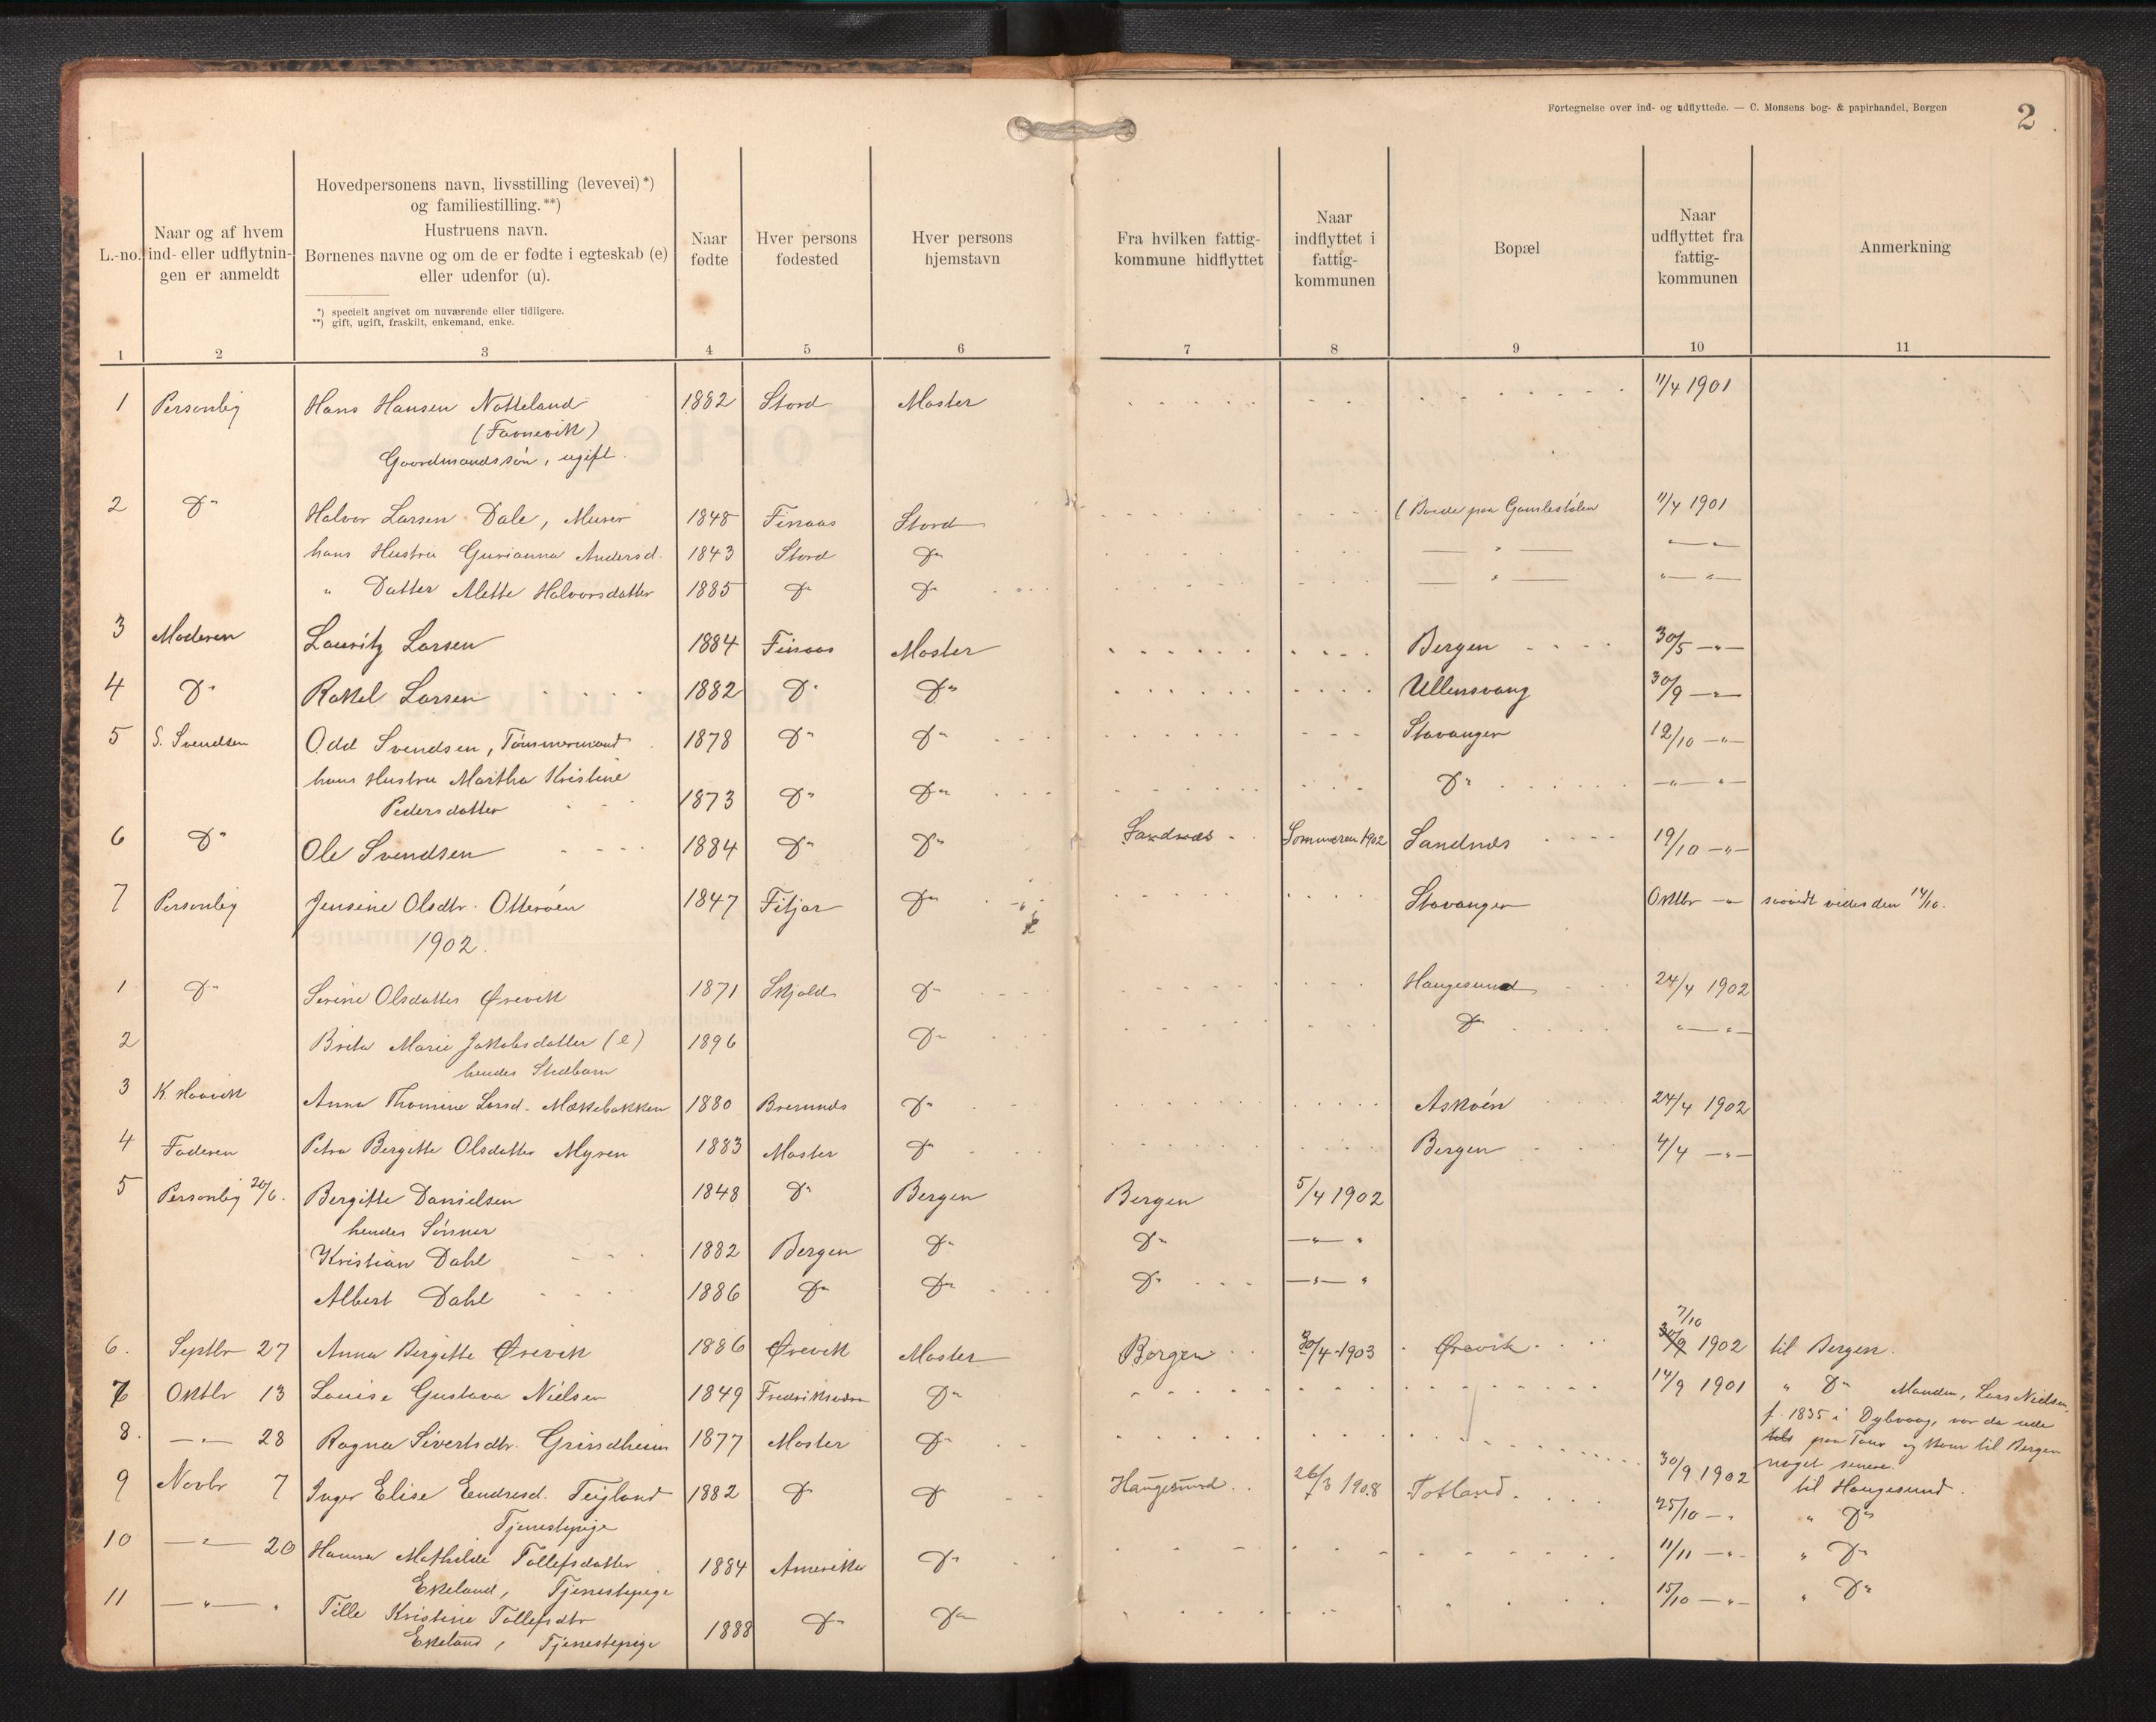 Fortegnelse over ind- og udflyttede. — C. Monsens bog- & papirhandel, Bergen
2
L.-no.
Naar og af hvem ind- eller udflytnin- gen er anmeldt
Hovedpersonens navn, livsstilling (levevei)*)
og familiestilling.**)
Hustruens navn.
Børnenes navne og om de er fødte i egteskab (e)
eller udenfor (u).
*) specielt angivet om nuværende eller tidligere.
**) gift, ugift, fraskilt, enkemand, enke.
Naar fødte
Hver persons fødested
Hver persons hjemstavn
Fra hvilken fattig- kommune hidflyttet
Naar indflyttet i fattig- kommunen
Bopæl
Naar udflyttet fra fattig- kommunen
Anmerkning
1 2 3 4 5 6 7 8 9 10 11
1 Personlig Hans Hansen Notteland 1882 Stord Moster 11/4 1901
(Favnevik)
Gaardmandssön, ugift.
2 Do Halvor Larsen Dale, Murer 1848 Finaas Stord (Boede paa Gamlestölen 11/4 1901
hans Hustru Gurianna Andersd. 1843 Stord Do — " — — " —
" Datter Alette Halvorsdatter 1885 Do Do — " — " — "
3 Moderen Lauritz Larsen 1884 Finaas Moster Bergen 30/5 — " —
4 Do Rakel Larsen 1882 Do Do Ullensvang 30/9 — " —
5 S. Svendsen Odd Svendsen, Tömmermand 1878 Do Do Stavanger 12/10 — " —
hans Hustru Martha Kristine
Pedersdatter 1873 Do Do Do — " — " —
6 Do Ole Svendsen 1884 Do Do Sandnæs Sommeren 1902 Sandnæs 19/10 — " —
7 Personlig Jensine Olsdtr. Otteröen 1847 Fitjar Do Stavanger Oktbr — " saavidt vides den 14/10.
1902.
1 Do Serine Olsdatter Ørevik 1871 Skjold Do Haugesund 24/4 1902
2 Brita Marie Jakobsdatter (e) 1896 Do Do " — " —
hendes Stedbarn
3 K. Haavik Anna Thomine Larsd. Mækebakken 1880 Bremnæs Do Askøen 24/4 1902
4 Faderen Petra Bergitte Olsdatter Myren 1883 Moster Do Bergen 4/4 — " —
5 Personlig 20/6. Bergitte Danielsen 1848 Do Bergen Bergen 5/4 1902
hendes Sönner
Kristian Dahl 1882 Bergen Do Do — " — "
Albert Dahl 1886 Do Do Do — " — "
7/10
6. Septbr 27 Anna Bergitte Ørevik 1886 Ørevik Moster Bergen 30/4 1903 Ørevik 30/9 1902 til Bergen.
7 Oktbr 13 Louise Gustava Nielsen 1849 Do 14/9 1901 " Do Manden, Lars Nielsen,
f. 1835 i Dybvaag, var da ude
paa Tour og kom til Bergen
noget senere.
8. — " — 28 Ragna Sivertsdtr. Grindheim 1877 Moster Do 30/9 1902 til Haugesund.
9 Novbr 7 Inger Elise Endresd. Teigland 1882 Do Do Haugesund 26/3 1908 Totland. 25/10 — " " Do
Tjenestepige
10 — " — 20 Hanna Mathilde Tollefsdatter 1884 Amerika Do 11/11 — " — " Do
Ekeland, Tjenestepige
11 — " — " Tille Kristine Tollefsdtr 1888 Do Do 15/10 — " — " Do
Ekeland, Tjenestepige